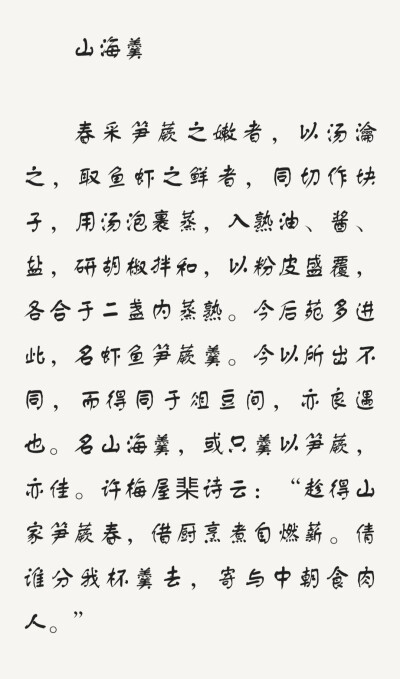 山海羹
春采笋蕨之嫩者，以汤瀹
之，取鱼虾之鲜者，同切作块
子，用汤泡裹蒸，入熟油、酱、
盐，研胡椒拌和，以粉皮盛覆，
各合于二盏内蒸熟。今后苑多进
此，名虾鱼笋蕨羹。今以所出不
同，而得同于俎豆间，亦良遇
也。名山海羹，或只羹以笋蕨，
亦佳。许梅屋棐诗云：“趁得山
家笋蕨春，借厨烹煮自燃薪。倩
谁分我杯羹去，寄与中朝食肉
人。”